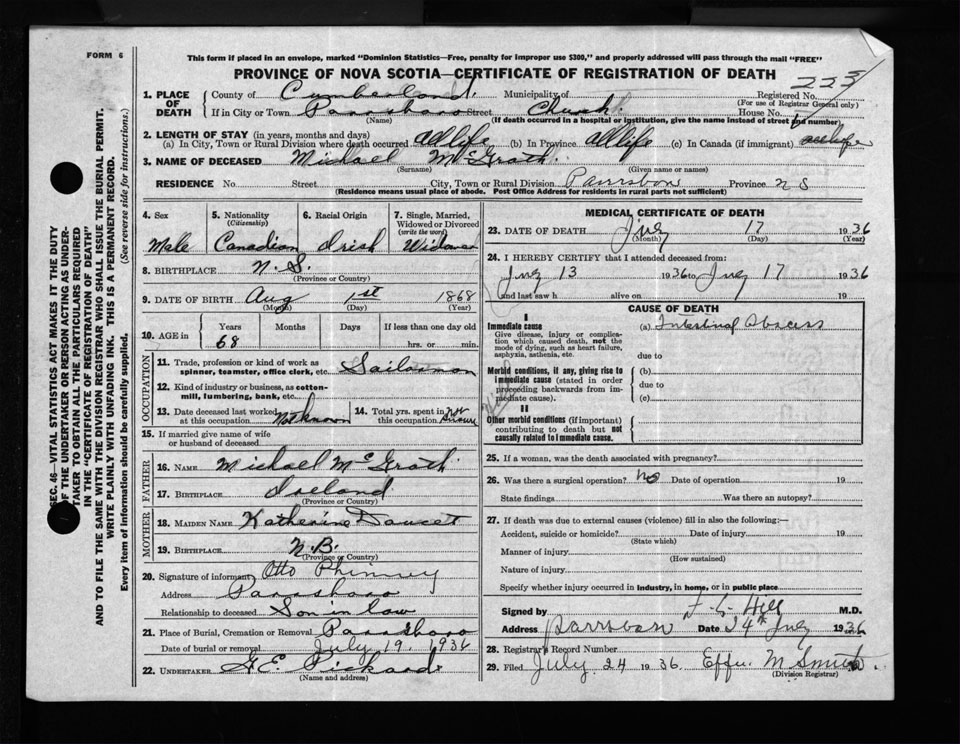 FORM 6
This form if placed in an envelope, marked "Dominion Statistics—Free, penalty for improper use $300," and properly addressed will pass through the mail "FREE"
PROVINCE OF NOVA SCOTIA—CERTIFICATE OF REGISTRATION OF DEATH
223
1. PLACE OF DEATH
County of Cumberland. Municipality of Registered No.
(For use of Registrar General only)
If in City or Town Parrsboro Street Church. House No.
(Name) (If death occurred in a hospital or institution, give the name instead of street and number)
2. LENGTH OF STAY (in years, months and days)
(a) In City, Town or Rural Division where death occurred all life (b) In Province all life (c) In Canada (if immigrant) all life
3. NAME OF DECEASED Michael McGrath.
(Surname) (Given name or names)
RESIDENCE No. Street City, Town or Rural Division Parrsboro Province N S
(Residence means usual place of abode. Post Office Address for residents in rural parts not sufficient)
4. Sex Male
5. Nationality (Citizenship) Canadian
6. Racial Origin Irish
7. Single, Married, Widowed or Divorced (write the word) Widower
8. BIRTHPLACE N. S.
(Province or Country)
9. DATE OF BIRTH Aug 1st 1868
(Month) (Day) (Year)
10. AGE in Years Months Days If less than one day old
68 hrs. or min.
OCCUPATION
11. Trade, profession or kind of work as spinner, teamster, office clerk, etc. Sailorman
12. Kind of industry or business, as cotton-mill, lumbering, bank, etc.
13. Date deceased last worked at this occupation Not known
14. Total yrs. spent in this occupation Not
15. If married give name of wife or husband of deceased
FATHER
16. NAME Michael McGrath.
17. BIRTHPLACE Ireland
(Province or Country)
MOTHER
18. MAIDEN NAME Katherine Doucet
19. BIRTHPLACE N.B.
(Province or Country)
20. Signature of informant Otto Phinney
Address Parrsboro
Relationship to deceased Son in law
21. Place of Burial, Cremation or Removal Parrsboro
Date of burial or removal July 19, 1936
22. UNDERTAKER Pickard
(Name and address)
MEDICAL CERTIFICATE OF DEATH
23. DATE OF DEATH July 17 1936
(Month) (Day) (Year)
24. I HEREBY CERTIFY that I attended deceased from:
July 13 1936 to July 17 1936
and last saw h alive on 19
CAUSE OF DEATH
I
Immediate cause
Give disease, injury or complication which caused death, not the mode of dying, such as heart failure, asphyxia, asthenia, etc.
(a) Intestinal Abscess
due to
Morbid conditions, if any, giving rise to immediate cause (stated in order proceeding backwards from immediate cause).
(b)
due to
(c)
II
Other morbid conditions (if important) contributing to death but not causally related to immediate cause.
25. If a woman, was the death associated with pregnancy?
26. Was there a surgical operation? No Date of operation 19
State findings Was there an autopsy?
27. If death was due to external causes (violence) fill in also the following:—
Accident, suicide or homicide? Date of injury 19
(State which)
Manner of injury
(How sustained)
Nature of injury
Specify whether injury occurred in industry, in home, or in public place
Signed by Hill M.D.
Address Parrsboro Date 24th July 1936
28. Registrar's Record Number
29. Filed July 24 1936. Effie M Smith
(Division Registrar)
SEC. 46—VITAL STATISTICS ACT MAKES IT THE DUTY
OF THE UNDERTAKER OR PERSON ACTING AS UNDER-
TAKER TO OBTAIN ALL THE PARTICULARS REQUIRED
IN THE "CERTIFICATE OF REGISTRATION OF DEATH"
AND TO FILE THE SAME WITH THE DIVISION REGISTRAR WHO SHALL ISSUE THE BURIAL PERMIT.
WRITE PLAINLY WITH UNFADING INK. THIS IS A PERMANENT RECORD.
Every item of information should be carefully supplied. (See reverse side for instructions.)